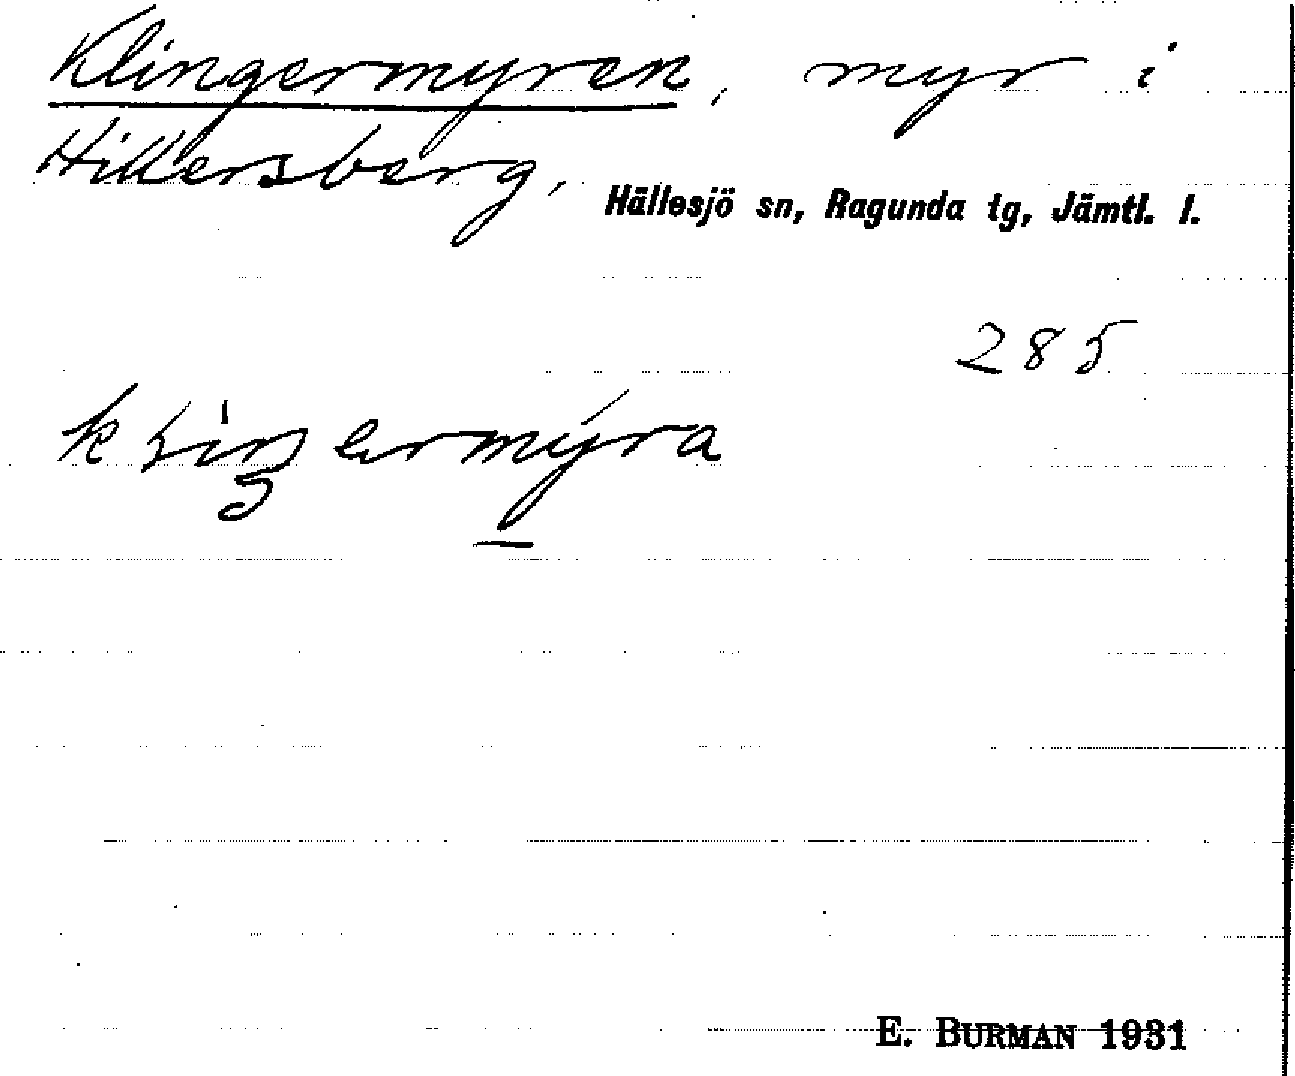 Klingermyren, myr i
Hillersberg,
Hällesjö sn, Ragunda tg, Jämtl. l.
285
E. BURMAN 1931